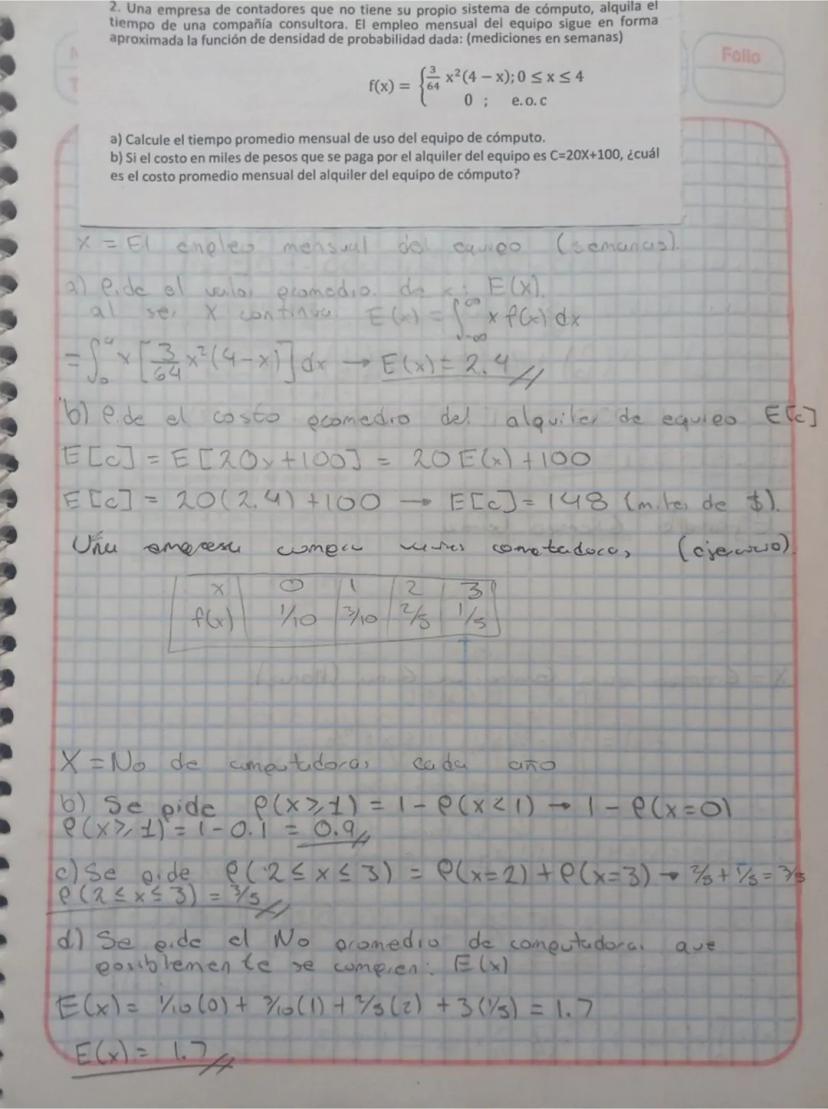 2. Una empresa de contadores que no tiene su propio sistema de cómputo, alquila el
tiempo de una compañía consultora. El empleo mensual del equipo sigue en forma
aproximada la función de densidad de probabilidad dada: (mediciones en semanas)
Folio
f(x) = { 3/64 x²(4 − x); 0 ≤ x ≤ 4
0 ; e.o.c
a) Calcule el tiempo promedio mensual de uso del equipo de cómputo.
b) Si el costo en miles de pesos que se paga por el alquiler del equipo es C=20X+100, ¿cuál
es el costo promedio mensual del alquiler del equipo de cómputo?
X = El empleo mensual del equipo (semanas).
a) Pide el valor promedio de x: E(x).
al ser X continua E(x) = ∫_{-∞}^{∞} x f(x) dx
= ∫_0^4 x [3/64 x²(4-x)] dx → E(x) = 2.4
b) Pide el costo promedio del alquiler de equipo E[c]
E[c] = E[20x+100] = 20E(x)+100
E[c] = 20(2.4)+100 → E[c] = 148 (miles de $).
Una empresa compra computadoras (ejercicio)
x 0 1 2 3
f(x) 1/10 3/10 2/5 1/5
X = No de computadoras cada año
b) Se pide P(x≥1) = 1 - P(x<1) → 1 - P(x=0)
P(x≥1) = 1-0.1 = 0.9
c) Se pide P(2≤x≤3) = P(x=2) + P(x=3) → 2/5 + 1/5 = 3/5
P(2≤x≤3) = 3/5
d) Se pide el No promedio de computadoras que
posiblemente se compren: E(x)
E(x) = 1/10(0) + 3/10(1) + 2/5(2) + 3(1/5) = 1.7
E(x) = 1.7